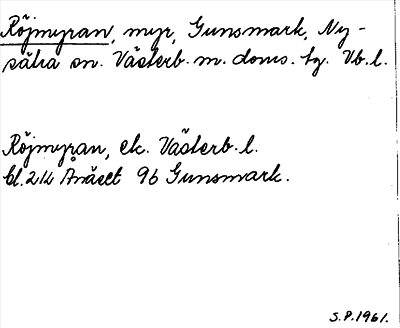 Röjmyran, myr, Gunsmark, Ny-
sätra sn. Västerb. m. doms. tg. Vb. l.
Röjmyran, ek. Västerb. l.
bl. 214 Ånäset 96 Gunsmark.
S.P. 1961.